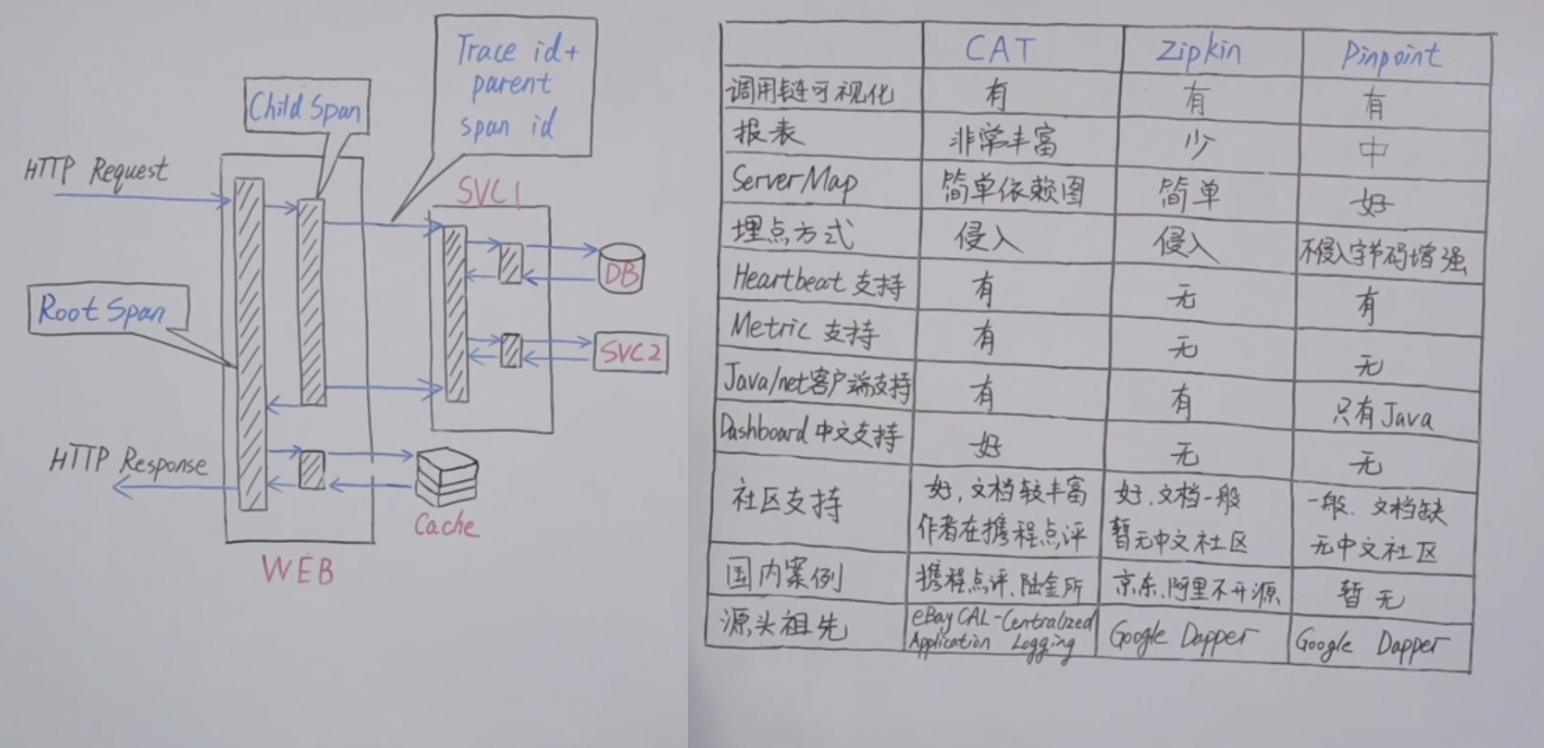 Trace id+
parent
span id
Child Span
HTTP Request
SVC1
DB
Root Span
SVC2
HTTP Response
Cache
WEB
CAT Zipkin Pinpoint
调用链可视化 有 有 有
报表 非常丰富 少 中
ServerMap 简单依赖图 简单 好
埋点方式 侵入 侵入 不侵入字节码增强
Heartbeat 支持 有 无 有
Metric 支持 有 无 无
Java/net客户端支持 有 有 只有Java
Dashboard 中文支持 好 无 无
社区支持 好,文档较丰富 好.文档一般 一般. 文档缺
作者在携程点评 暂无中文社区 无中文社区
国内案例 携程点评、陆金所 京东、阿里不开源 暂无
源头祖先 eBay CAL-Centralized Google Dapper Google Dapper
Application Logging